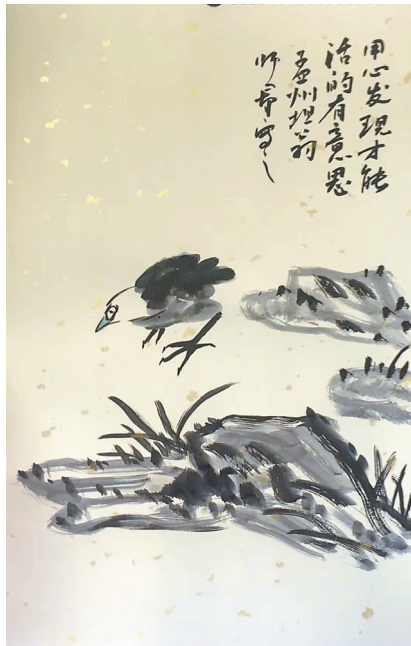 用心发现才能
活的有意思
孟州坦翁
师尋写之